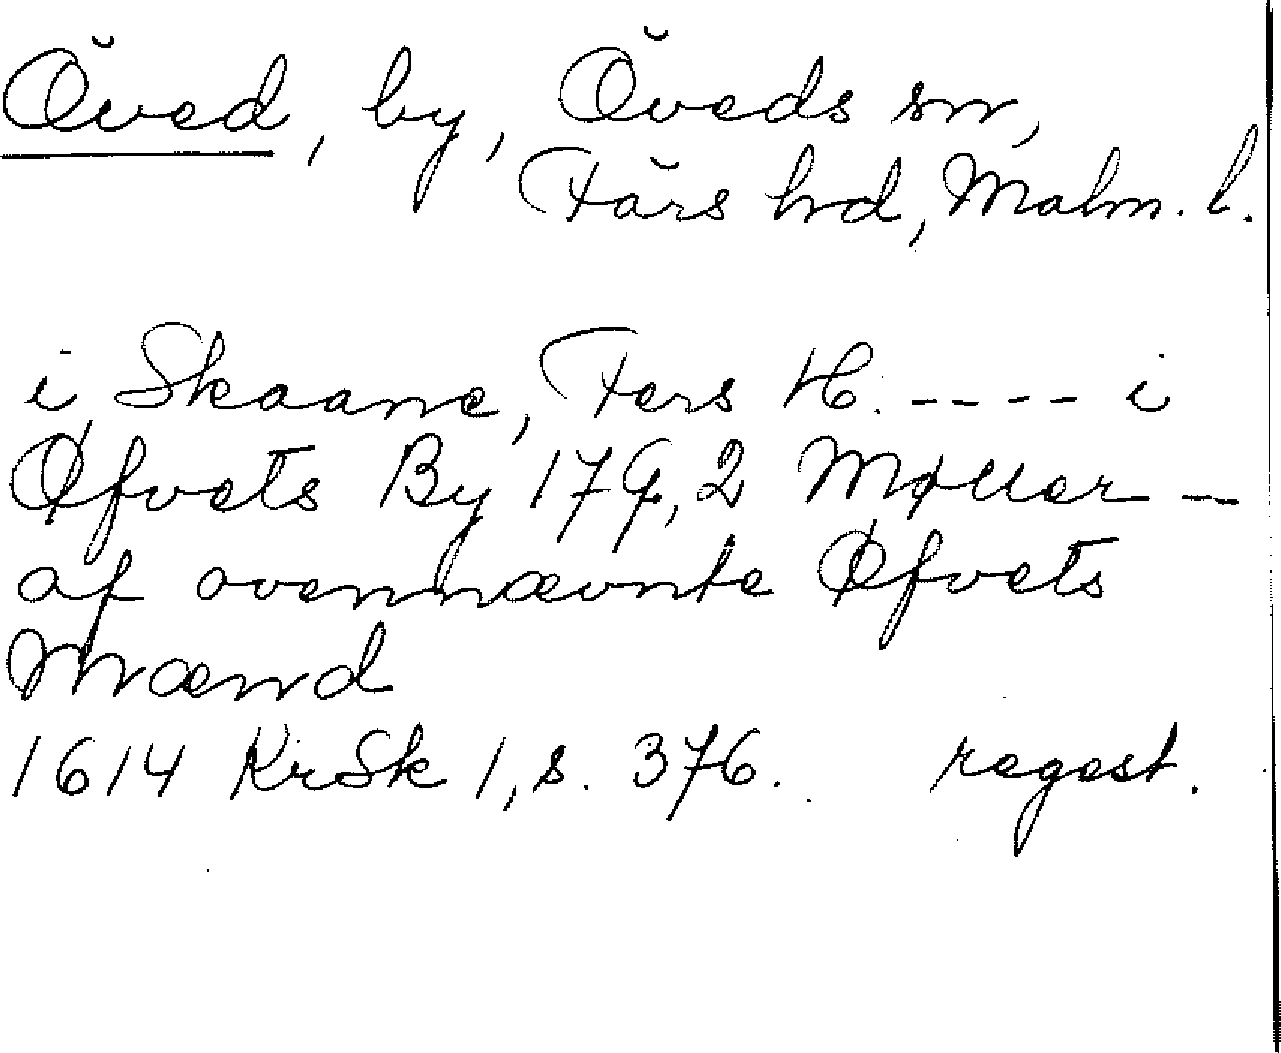 Öved, by, Öveds sn,
Färs hd, Malm. l.
i Skaane, Fers H. ---- i
Øfvets By 17 G, 2 Møller --
af ovennævnte Øfvets
Mænd
1614 KrSk 1, s. 376. regest.